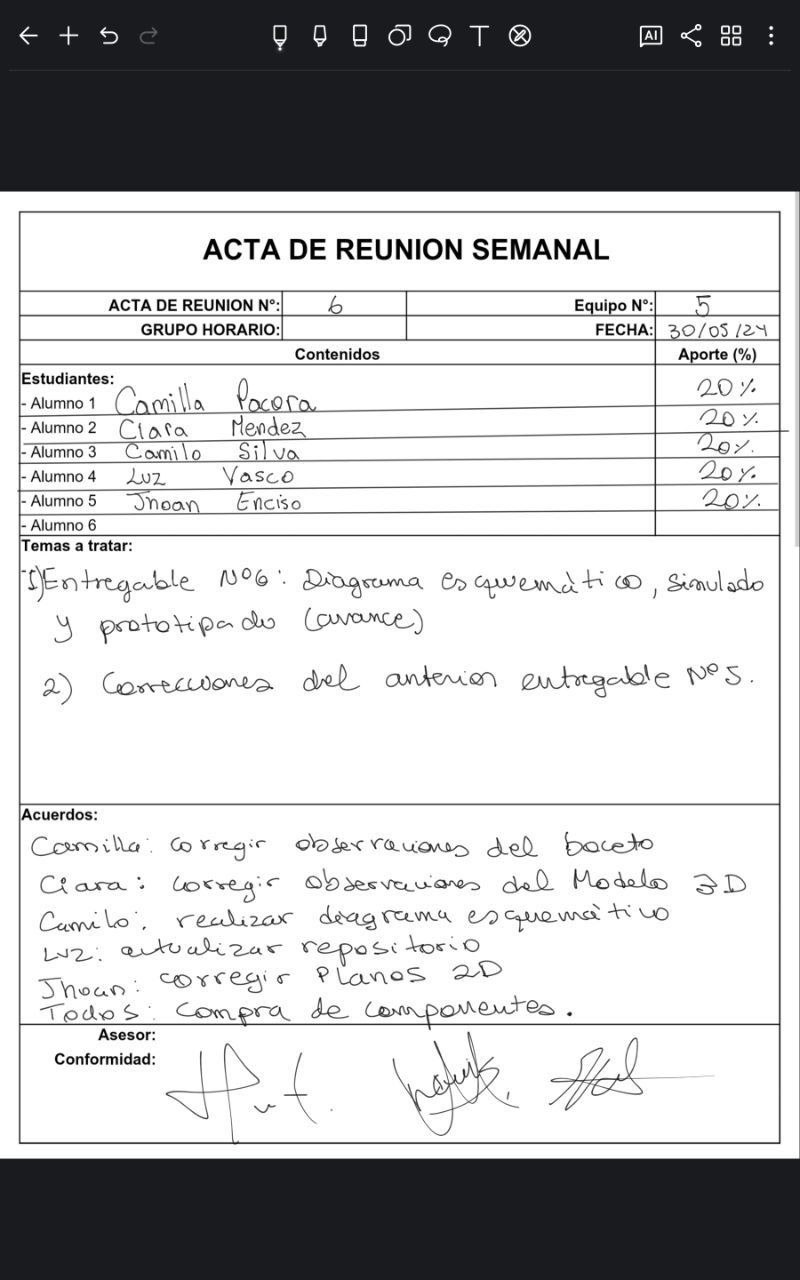 AI
ACTA DE REUNION SEMANAL
ACTA DE REUNION N°: 6 Equipo N°: 5
GRUPO HORARIO: FECHA: 30/05/24
Contenidos Aporte (%)
Estudiantes:
- Alumno 1 Camilla Pacora 20%
- Alumno 2 Clara Mendez 20%
- Alumno 3 Camilo Silva 20%
- Alumno 4 Luz Vasco 20%
- Alumno 5 Jhoan Enciso 20%
- Alumno 6
Temas a tratar:
1) Entregable N°6: Diagrama esquemàtico, simulado
y prototipado (avance)
2) Correcciones del anterior entregable N°5.
Acuerdos:
Camilla: corregir observaciones del boceto
Clara: corregir observaciones del Modelo 3D
Camilo: realizar diagrama esquemàtico
Luz: actualizar repositorio
Jhoan: corregir Planos 2D
Todos: compra de componentes.
Asesor:
Conformidad: